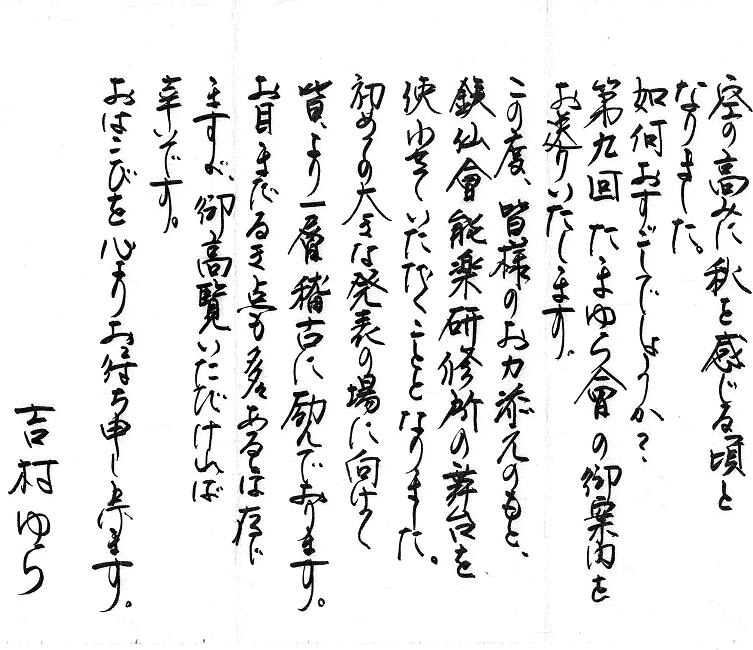 空の高みに秋を感じる頃と
なりました。
如何おすごしでしょうか？
第九回 たまゆら會の御案内を
お送りいたします。
この度、皆様のお力添えのもと、
銕仙會能楽研修所の舞台を
使わせていただくこととなりました。
初めての大きな発表の場に向けて
皆、より一層稽古に励んでおります。
お目まだるき点も多々あるとは存じ
ますが、御高覧いただければ
幸いです。
おはこびを心よりお待ち申し上ます。
吉村ゆら